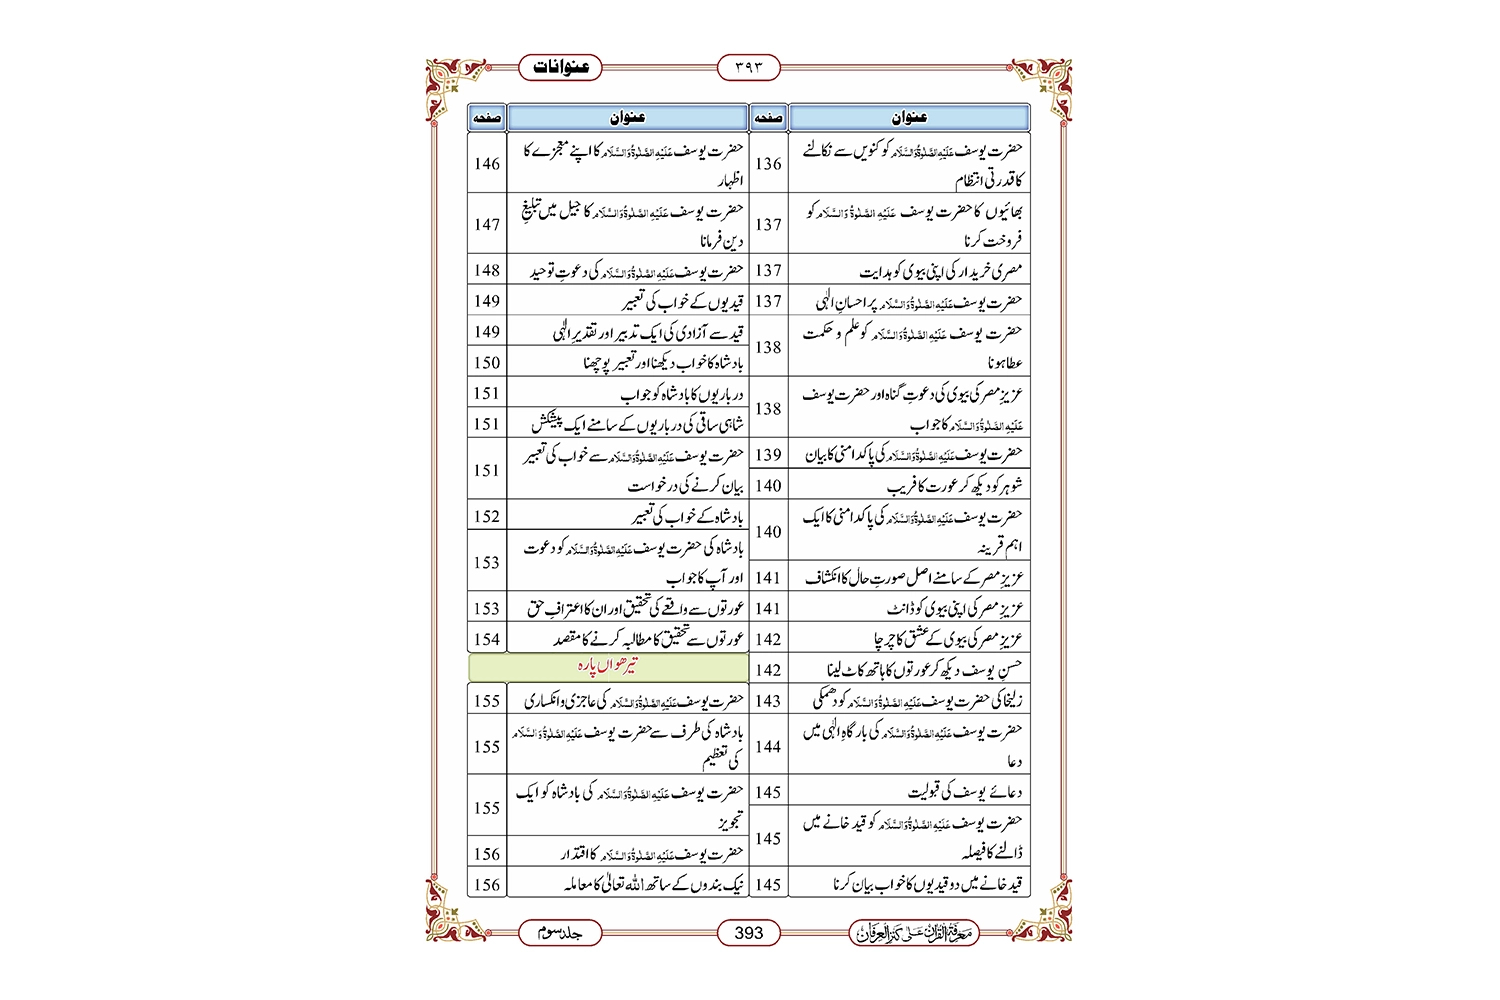 عنوانات
۳۹۳
عنوان
صفحہ
حضرت یوسف عَلَیْہِ الصَّلٰوۃُ وَالسَّلَام کو کنویں سے نکالنے
کا قدرتی انتظام
136
بھائیوں کا حضرت یوسف عَلَیْہِ الصَّلٰوۃُ وَالسَّلَام کو
فروخت کرنا
137
مصری خریدار کی اپنی بیوی کو ہدایت
137
حضرت یوسف عَلَیْہِ الصَّلٰوۃُ وَالسَّلَام پر احسانِ الٰہی
137
حضرت یوسف عَلَیْہِ الصَّلٰوۃُ وَالسَّلَام کو علم و حکمت
عطا ہونا
138
عزیزِ مصر کی بیوی کی دعوتِ گناہ اور حضرت یوسف
عَلَیْہِ الصَّلٰوۃُ وَالسَّلَام کا جواب
138
حضرت یوسف عَلَیْہِ الصَّلٰوۃُ وَالسَّلَام کی پاکدامنی کا بیان
139
شوہر کو دیکھ کر عورت کا فریب
140
حضرت یوسف عَلَیْہِ الصَّلٰوۃُ وَالسَّلَام کی پاکدامنی کا ایک
اہم قرینہ
140
عزیزِ مصر کے سامنے اصل صورتِ حال کا انکشاف
141
عزیزِ مصر کی اپنی بیوی کو ڈانٹ
141
عزیزِ مصر کی بیوی کے عشق کا چرچا
142
حسنِ یوسف دیکھ کر عورتوں کا ہاتھ کاٹ لینا
142
زلیخا کی حضرت یوسف عَلَیْہِ الصَّلٰوۃُ وَالسَّلَام کو دھمکی
143
حضرت یوسف عَلَیْہِ الصَّلٰوۃُ وَالسَّلَام کی بارگاہِ الٰہی میں
دعا
144
دعائے یوسف کی قبولیت
145
حضرت یوسف عَلَیْہِ الصَّلٰوۃُ وَالسَّلَام کو قید خانے میں
ڈالنے کا فیصلہ
145
قید خانے میں دو قیدیوں کا خواب بیان کرنا
145
عنوان
صفحہ
حضرت یوسف عَلَیْہِ الصَّلٰوۃُ وَالسَّلَام کا اپنے معجزے کا
اظہار
146
حضرت یوسف عَلَیْہِ الصَّلٰوۃُ وَالسَّلَام کا جیل میں تبلیغِ
دین فرمانا
147
حضرت یوسف عَلَیْہِ الصَّلٰوۃُ وَالسَّلَام کی دعوتِ توحید
148
قیدیوں کے خواب کی تعبیر
149
قید سے آزادی کی ایک تدبیر اور تقدیرِ الٰہی
149
بادشاہ کا خواب دیکھنا اور تعبیر پوچھنا
150
درباریوں کا بادشاہ کو جواب
151
شاہی ساقی کی درباریوں کے سامنے ایک پیشکش
151
حضرت یوسف عَلَیْہِ الصَّلٰوۃُ وَالسَّلَام سے خواب کی تعبیر
بیان کرنے کی درخواست
151
بادشاہ کے خواب کی تعبیر
152
بادشاہ کی حضرت یوسف عَلَیْہِ الصَّلٰوۃُ وَالسَّلَام کو دعوت
اور آپ کا جواب
153
عورتوں سے واقعے کی تحقیق اور ان کا اعترافِ حق
153
عورتوں سے تحقیق کا مطالبہ کرنے کا مقصد
154
تیرھواں پارہ
حضرت یوسف عَلَیْہِ الصَّلٰوۃُ وَالسَّلَام کی عاجزی و انکساری
155
بادشاہ کی طرف سے حضرت یوسف عَلَیْہِ الصَّلٰوۃُ وَالسَّلَام
کی تعظیم
155
حضرت یوسف عَلَیْہِ الصَّلٰوۃُ وَالسَّلَام کی بادشاہ کو ایک
تجویز
155
حضرت یوسف عَلَیْہِ الصَّلٰوۃُ وَالسَّلَام کا اقتدار
156
نیک بندوں کے ساتھ اللہ تعالیٰ کا معاملہ
156
معرفۃ القرآن علیٰ کنز العرفان
393
جلد سوم